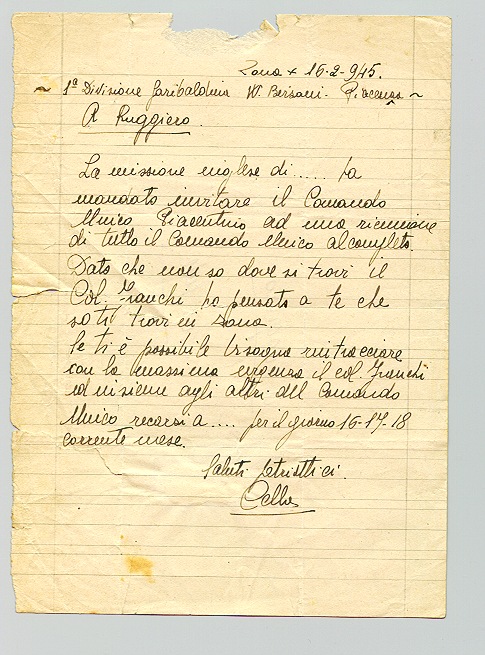 Zona x 16-2-945.
~ 1ª Divisione Garibaldina W. Bersani - Piacenza ~
A Ruggiero.
La missione inglese di ..... ha
mandato invitare il Comando
Unico Piacentino ad una riunione
di tutto il Comando Unico al completo.
Dato che non so dove si trovi il
Col. Franchi ho pensato a te che
so ti trovi in zona.
Se ti è possibile bisogna rintracciare
con la massima urgenza il col. Franchi
ed insieme agli altri del Comando
Unico recarsi a .... per il giorno 16-17-18
corrente mese.
Saluti